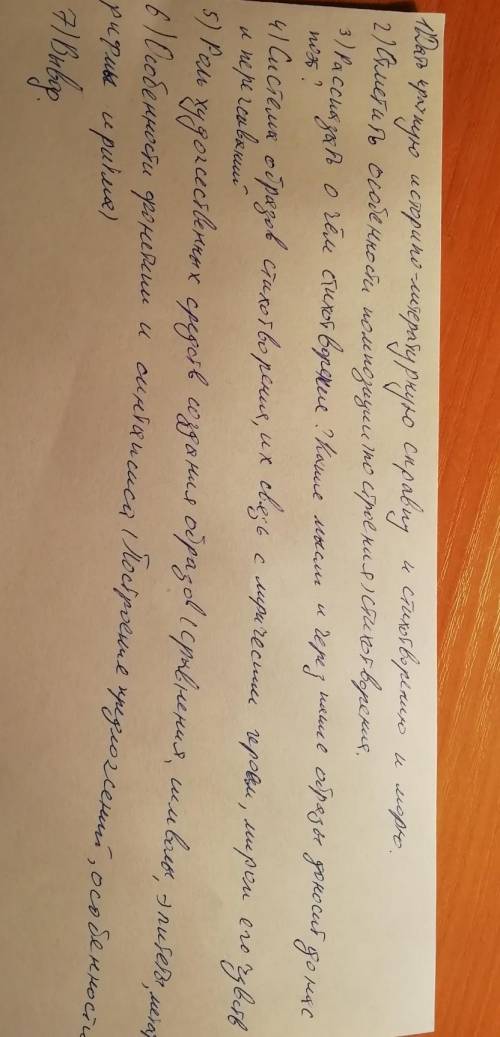 1) Дать краткую историко-литературную справку и стихотворению и морю.
2) Отметить особенности композиции (построения) стихотворения.
3) Рассказать о чём стихотворение? Какие мысли и через какие образы доносит до нас
поэт?
4) Система образов стихотворения, их связь с лирическим героем, миром его чувств
и переживаний
5) Роль художественных средств создания образов (сравнения, символы, эпитеты, метаф
6) Особенности фонетики и синтаксиса (Построение предложений, особенности
рифмы и ритма)
7) Вывод.